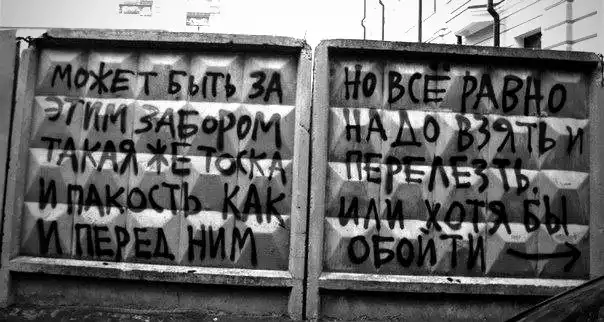 МОЖЕТ БЫТЬ ЗА
ЭТИМ ЗАБОРОМ
ТАКАЯ ЖЕ ТОСКА
И ПАКОСТЬ. КАК
И ПЕРЕД НИМ
НО ВСЁ РАВНО
НАДО ВЗЯТЬ И
ПЕРЕЛЕЗТЬ.
ИЛИ ХОТЯ БЫ
ОБОЙТИ →